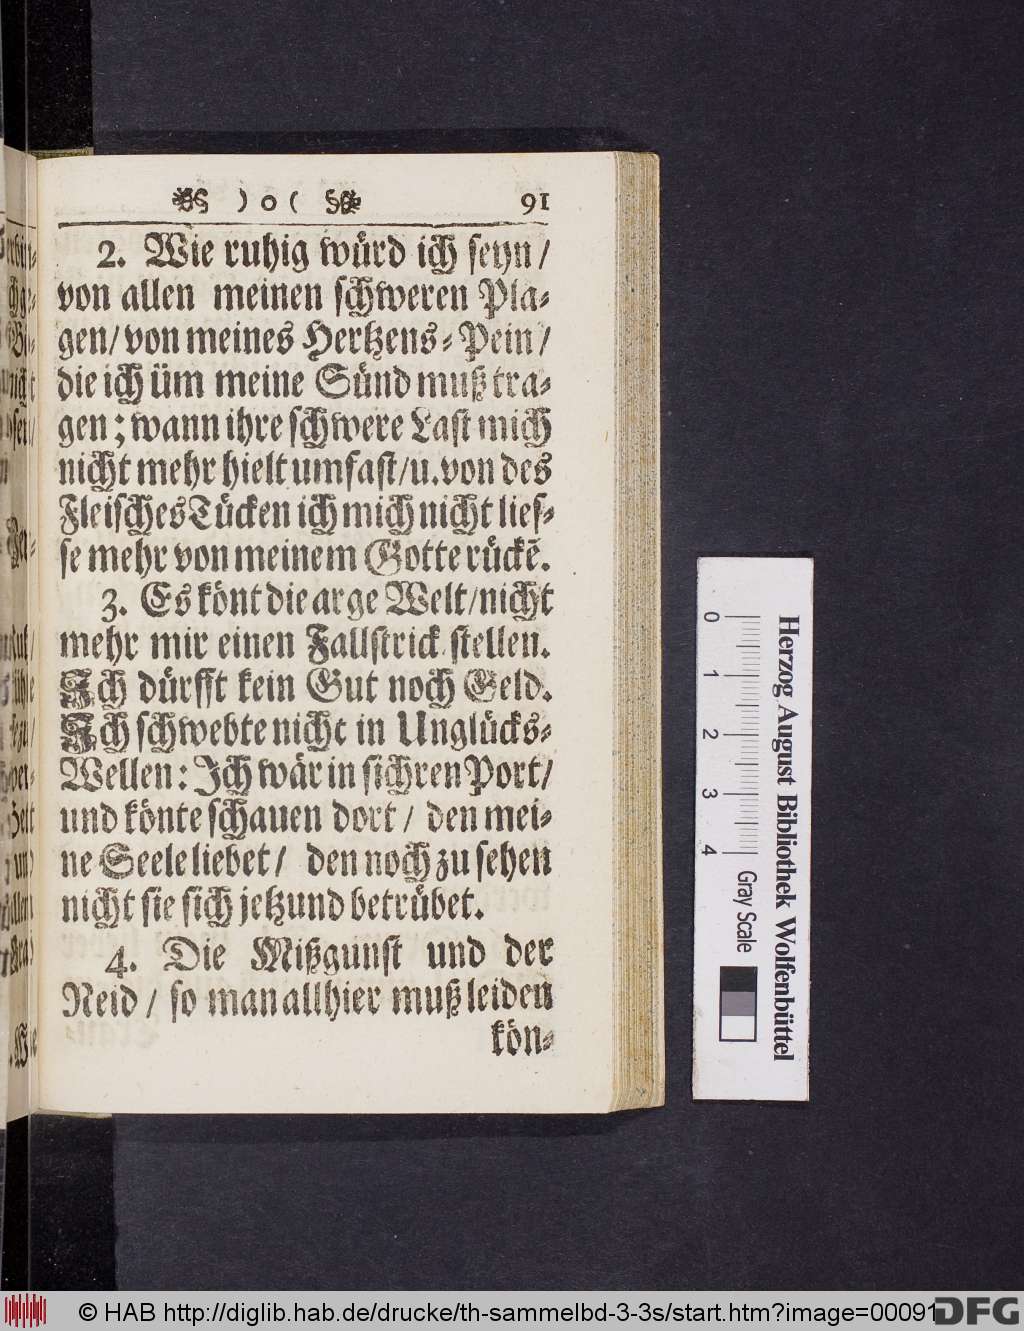 ) o ( 91
2. Wie ruhig würd ich seyn /
von allen meinen schweren Pla-
gen / von meines Hertzens-Pein /
die ich üm meine Sünd muß tra-
gen ; wann ihre schwere Last mich
nicht mehr hielt umfast / u. von des
Fleisches Tücken ich mich nicht lies-
se mehr von meinem Gotte rückẽ.
3. Es könt die arge Welt / nicht
mehr mir einen Fallstrick stellen.
Ich dürfft kein Gut noch Geld.
Ich schwebte nicht in Unglücks-
Wellen: Ich wär in sichren Port /
und könte schauen dort / den mei-
ne Seele liebet / den noch zu sehen
nicht sie sich jetzund betrübet.
4. Die Mißgunst und der
Neid / so man allhier muß leiden
kön-
0 1 2 3 4 Gray Scale
Herzog August Bibliothek Wolfenbüttel
© HAB http://diglib.hab.de/drucke/th-sammelbd-3-3s/start.htm?image=00091
DFG